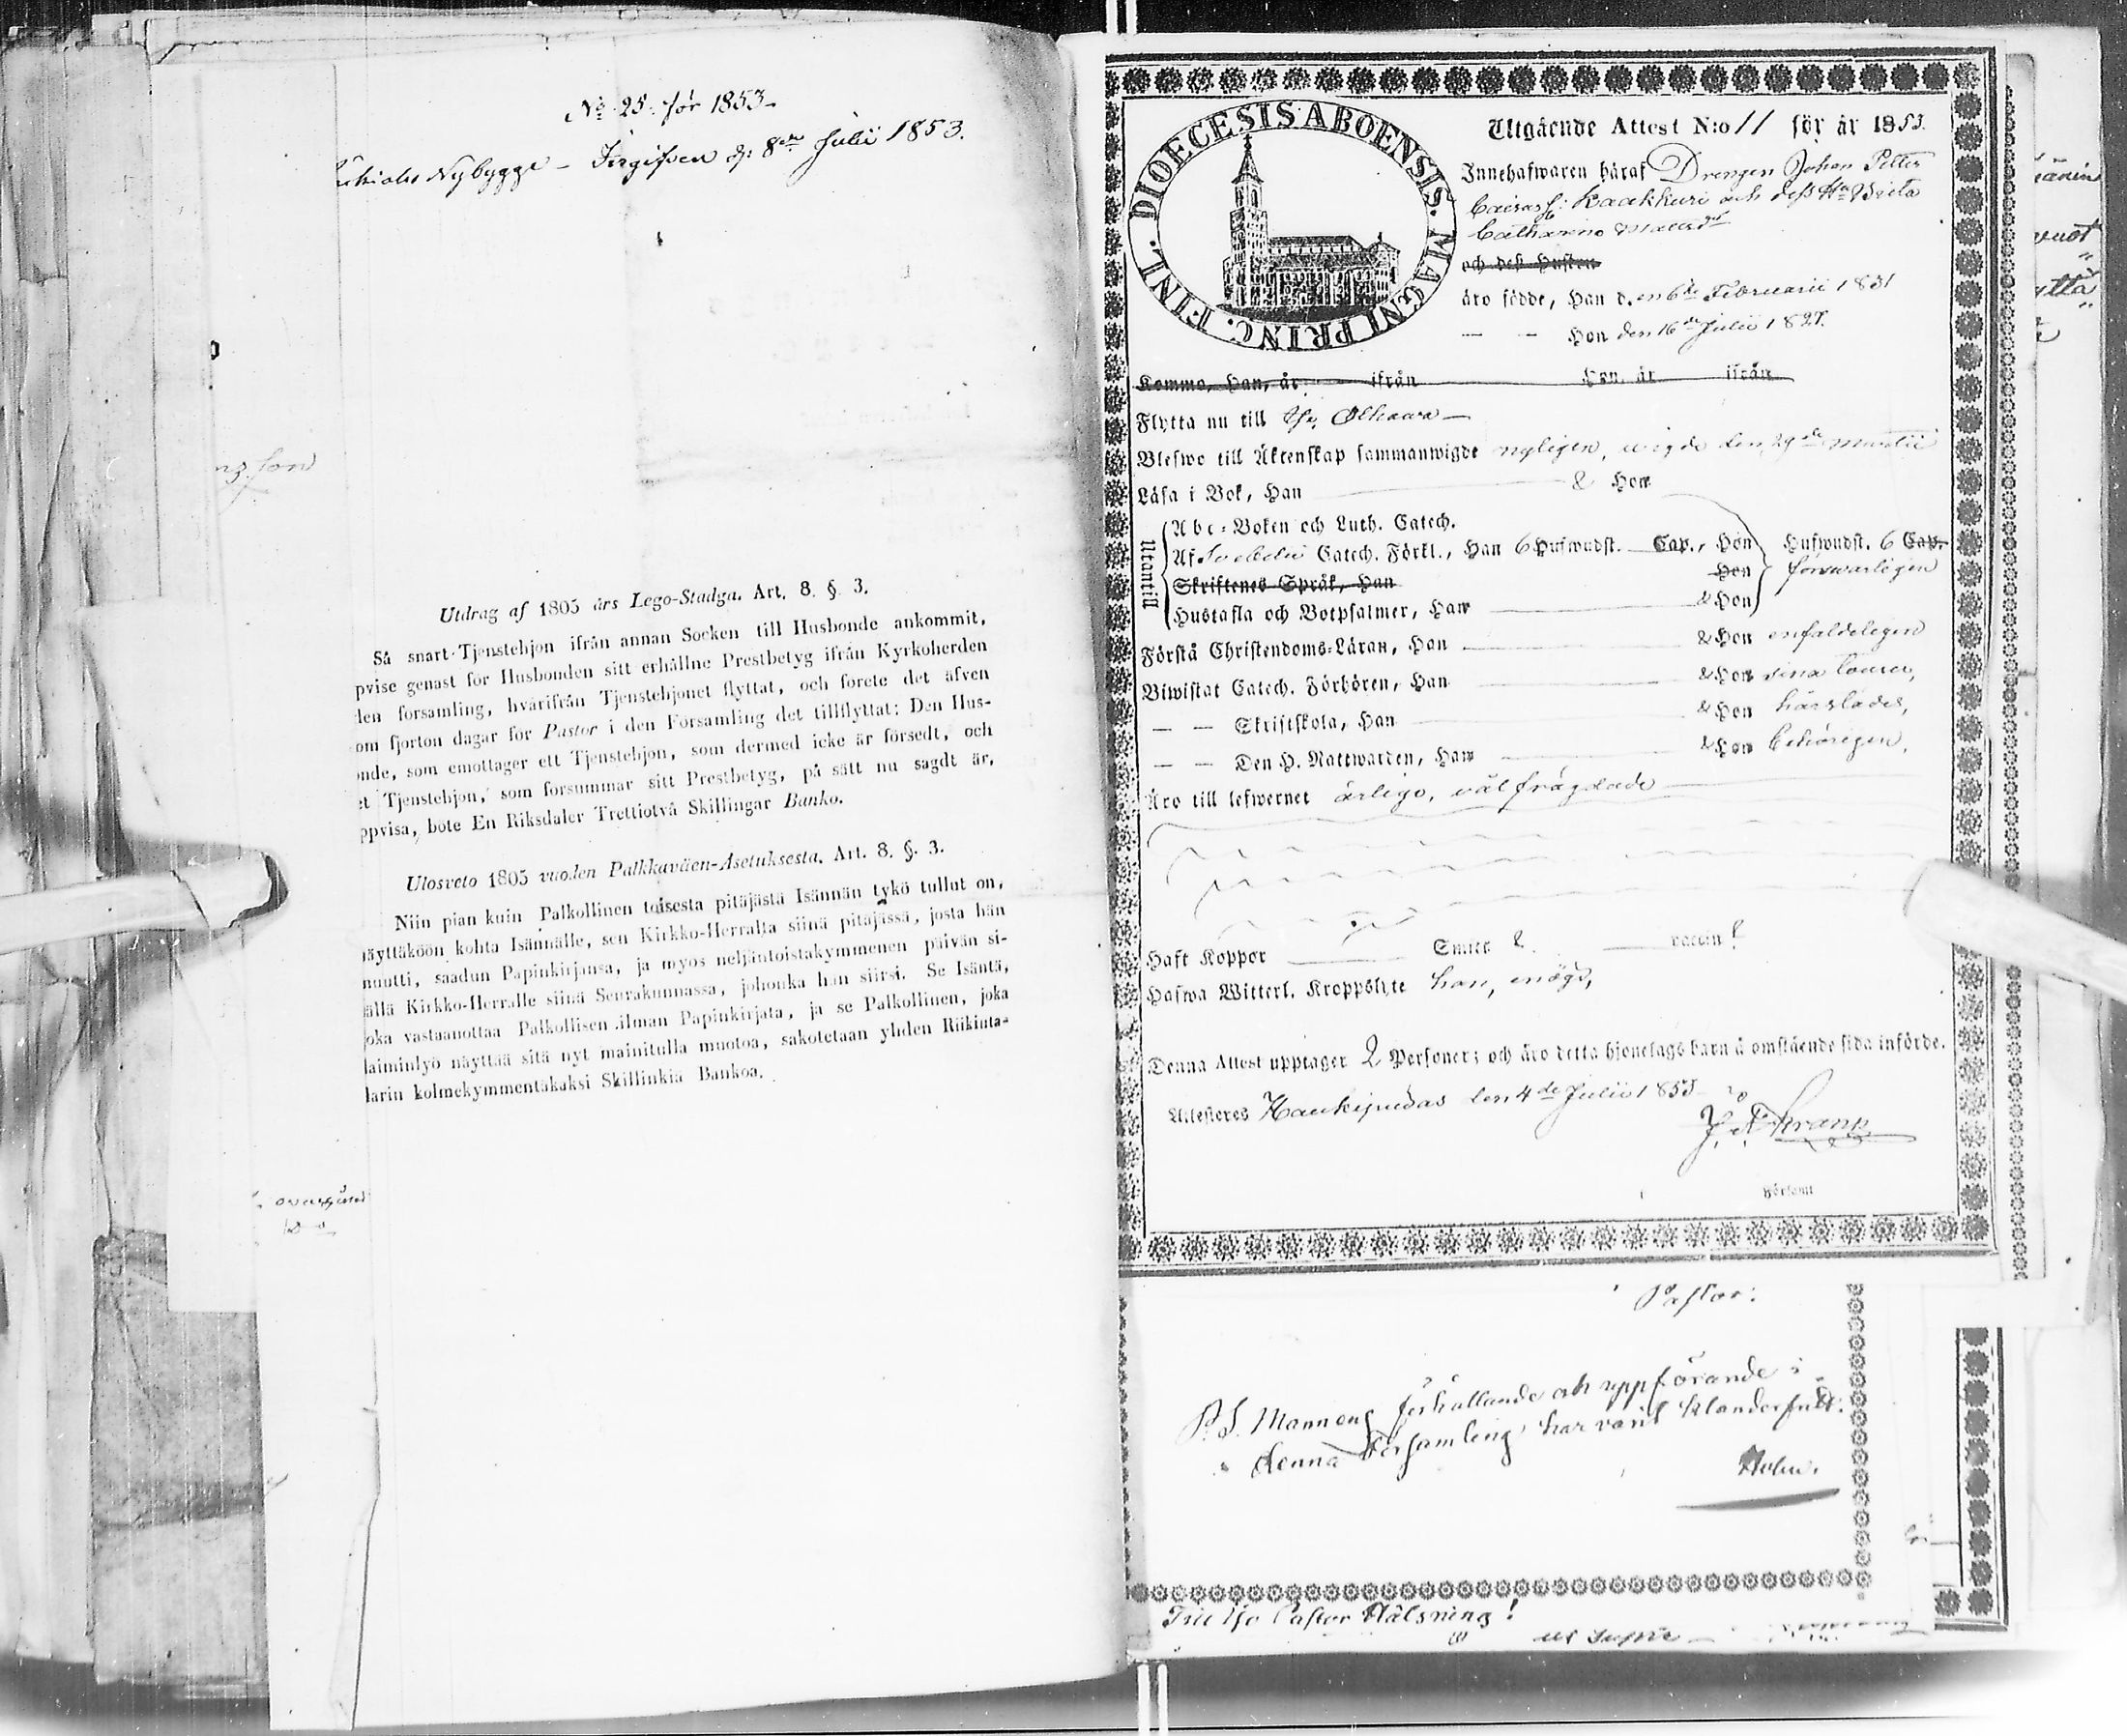 No 25. för 1853.
Nybygge – Ingifven d: 8de Julii 1853.
Utdrag af 1805 års Lego-Stadga. Art. 8. §. 3.
Så snart Tjenstehjon ifrån annan Socken till Husbonde ankommit,
pvise genast för Husbonden sitt erhållne Prestbetyg ifrån Kyrkoherden
den församling, hvarifrån Tjenstehjonet flyttat, och förete det äfven
om fjorton dagar för Pastor i den Församling det tillflyttat: Den Hus-
onde, som emottager ett Tjenstehjon, som dermed icke är försedt, och
et Tjenstehjon, som försummar sitt Prestbetyg, på sätt nu sagdt är,
ppvisa, böte En Riksdaler Trettiotvå Skillingar Banko.
Ulosveto 1805 vuoden Palkkaväen-Asetuksesta. Art. 8. §. 3.
Niin pian kuin Palkollinen toisesta pitäjästä Isännän tykö tullut on,
näyttäköön kohta Isännälle, sen Kirkko-Herralta siinä pitäjässä, josta hän
muutti, saadun Papinkirjansa, ja myös neljäntoistakymmenen päivän si-
ällä Kirkko-Herralle siinä Seurakunnassa, johonka hän siirsi. Se Isäntä,
joka vastaanottaa Palkollisen ilman Papinkirjata, ja se Palkollinen, joka
laiminlyö näyttää sitä nyt mainitulla muotoa, sakotetaan yhden Riikinta-
larin kolmekymmentäkaksi Skillinkiä Bankoa.
DIOECESIS ABOENSIS. MAGNI PRINC. FINL.
Utgående Attest N:o 11 för år 1853.
Innehafwaren häraf Drengen Johan Petter
Kaakkuri och dess Hu Brita
Catharina Matsdr
och dess Hustru
äro födde, Han d. en 6te Februarii 1831
— — Hon den 16de Julii 1827.
Komma, Han, år ifrån Hon, år ifrån
Flytta nu till Ijo, Olhava —
Blefwo till Äktenskap sammanwigde nyligen, wigde den 29de Martii
Läsa i Bok, Han & Hon
Utantill
Abc-Boken och Luth. Catech.
Af Svebelii Catech. Förkl., Han 6 Hufwudst. Cap., Hon Hufwudst. 6 Cap.
Skriftenes Språk, Han Hon försvarligen
Hustafla och Botpsalmer, Han & Hon
Förstå Christendoms-Läran, Han & Hon enfaldeligen
Biwistat Catech. Förhören, Han & Hon sina tourer,
— — Skriftskola, Han & Hon härstädes,
— — Den H. Nattwarden, Han & Hon behörigen,
Äro till lefwernet ärliga, välfrägdade
Haft Koppor Smitt. 2. vaccin:
Hafwa Witterl. Kroppslyte han, enögd,
Denna Attest upptager 2 Personer; och äro detta hjonelags barn å omstående sida införde.
Attesteras Haukipudas den 4de Julii 1853
Församl.
Pastor.
P.S. Mannens förhållande och uppförande i
denna Församling har varit klanderfritt.
Till Ijo Pastor Hälsning!